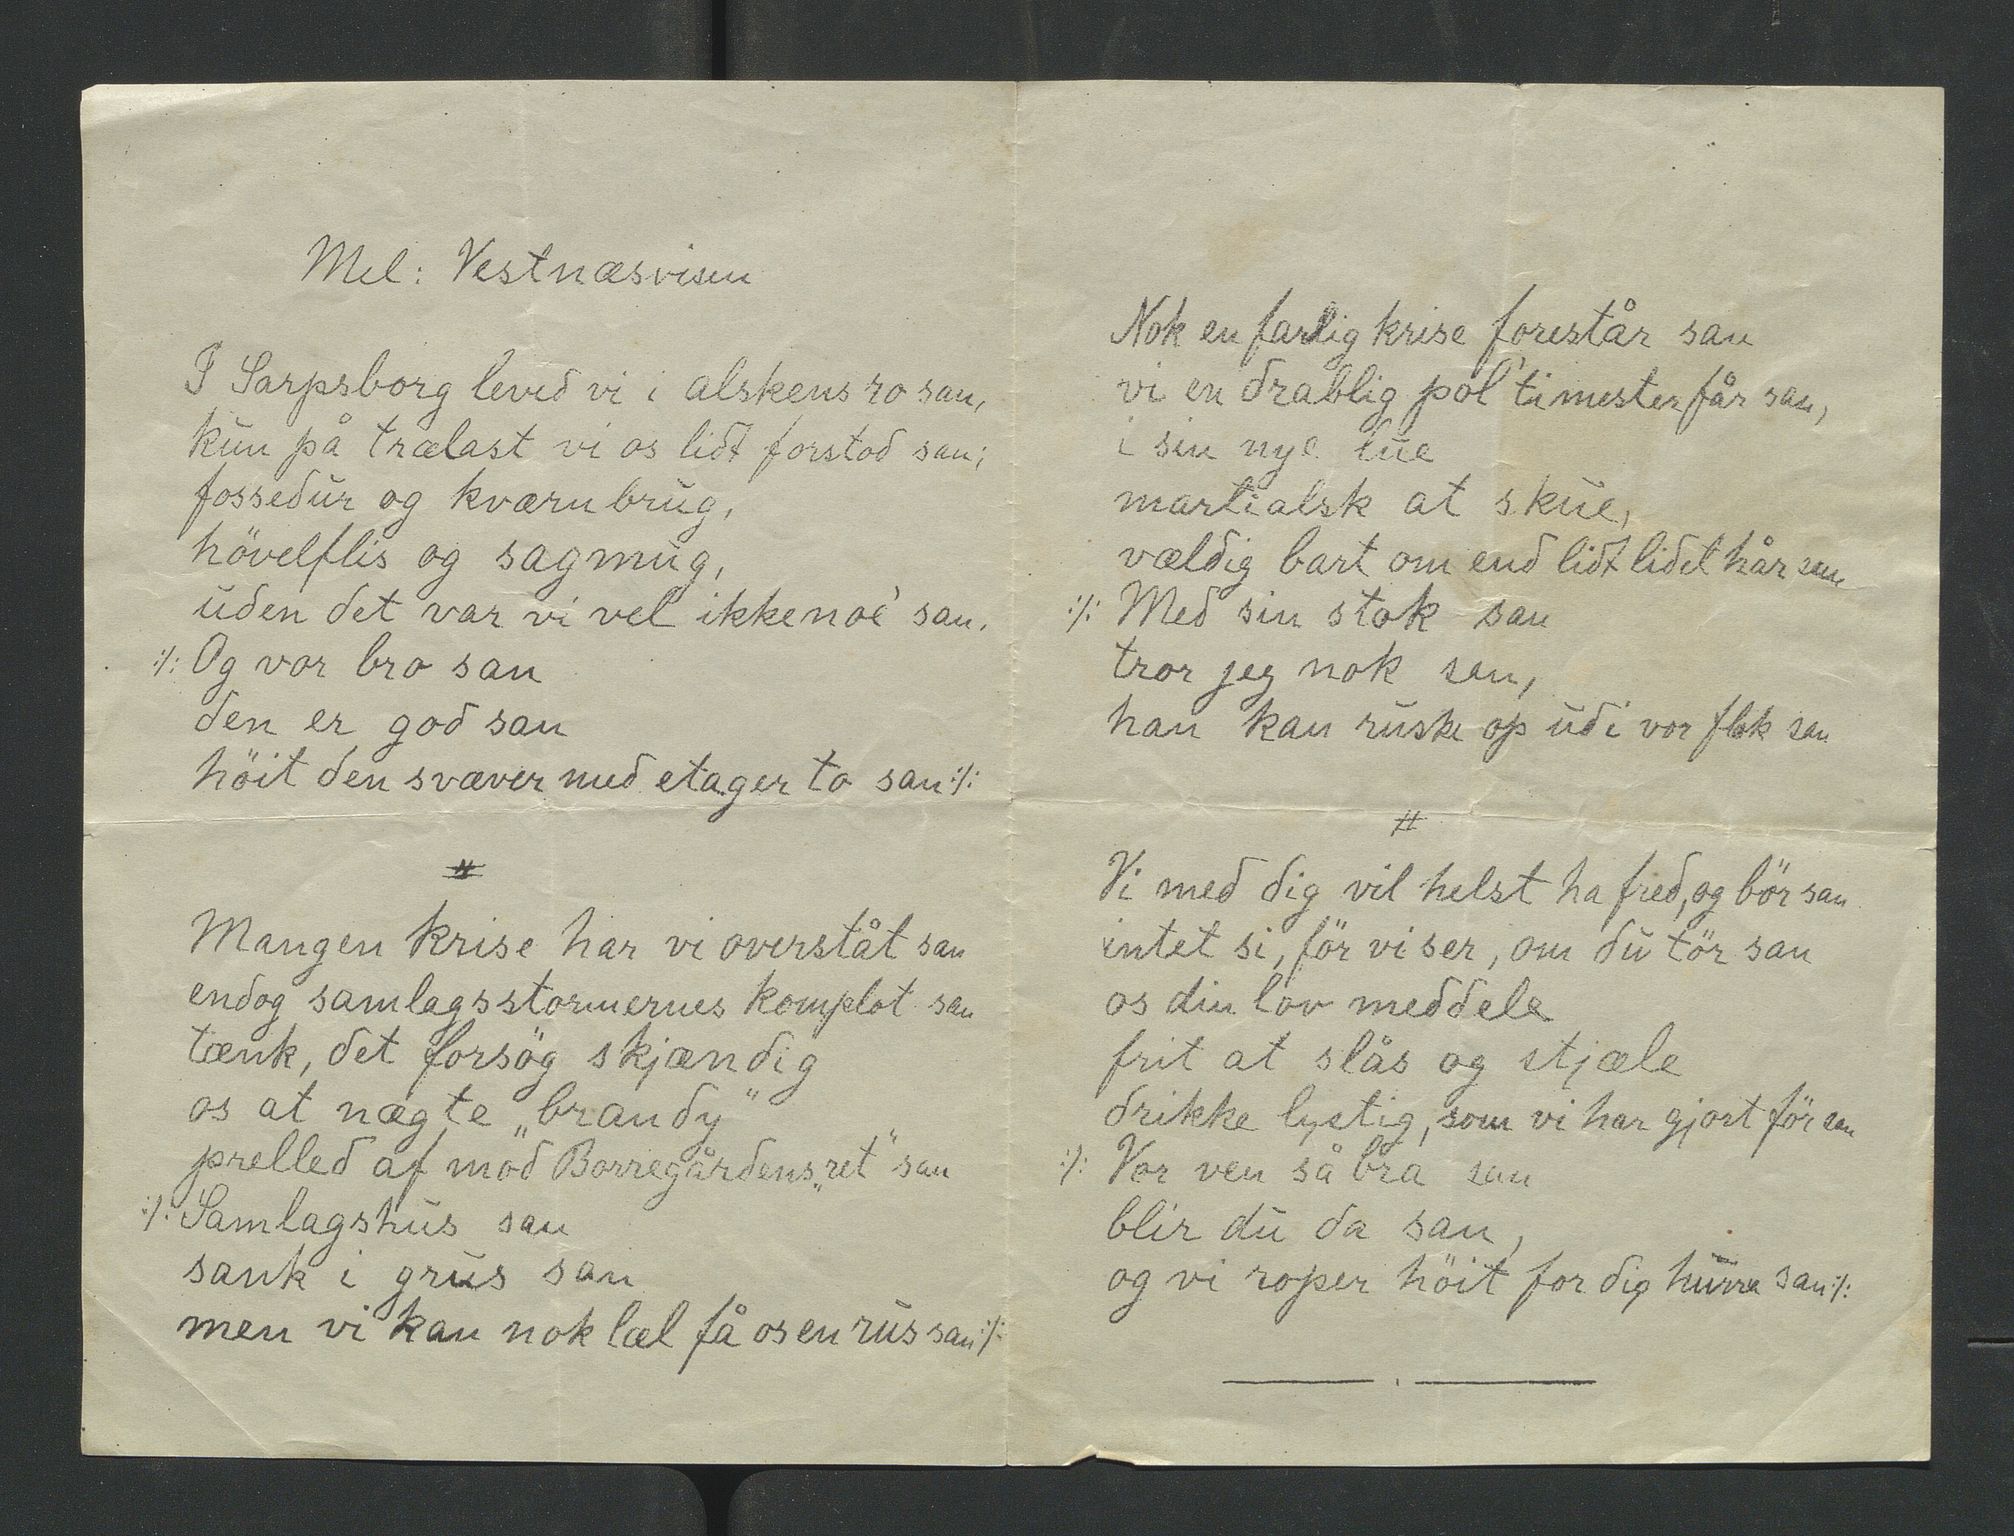 Mel: Vestnæsvisen
I Sarpsborg leved vi i alskens ro san,
kun på trælast vi os lidt forstod san;
fossedur og kværnbrug,
hövelflis og sagmug,
uden det var vi vel ikke noe' san.
:/: Og vor bro san
den er god san
höit den svæver med etager to san :/:
#
Mangen krise har vi overståt san
endog samlagsstormernes komplot san
tænk, det forsög skjændig
os at nægte „brandy"
prelled af mod Borregårdens „ret" san
:/: Samlagshus san
sank i grus san
men vi kan nok læl få os en rus san :/:
Nok en farlig krise forestår san
vi en drablig pol'timester får san,
i sin nye lue
martialsk at skue,
vældig bart om end lidt lidet hår san
:/: Med sin stok san
tror jeg nok san,
han kan ruske op udi vor flok san
#
Vi med dig vil helst ha fred, og bör san
intet si, för vi ser, om du tör san
os din lov meddele
frit at slås og stjæle
drikke lystig, som vi har gjort för san
:/: Vor ven så bra san
blir du da san,
og vi roper höit for dig hurra san :/: